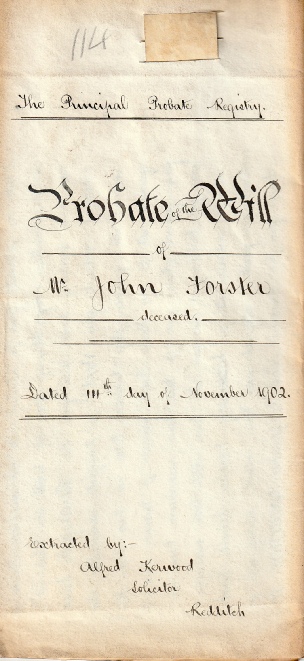 114
The Principal Probate Registry.
Probate of the Will
of
Mr. John Forster
deceased.
Dated 11th day of November 1902.
Extracted by:-
Alfred Kerwood
Solicitor
Redditch